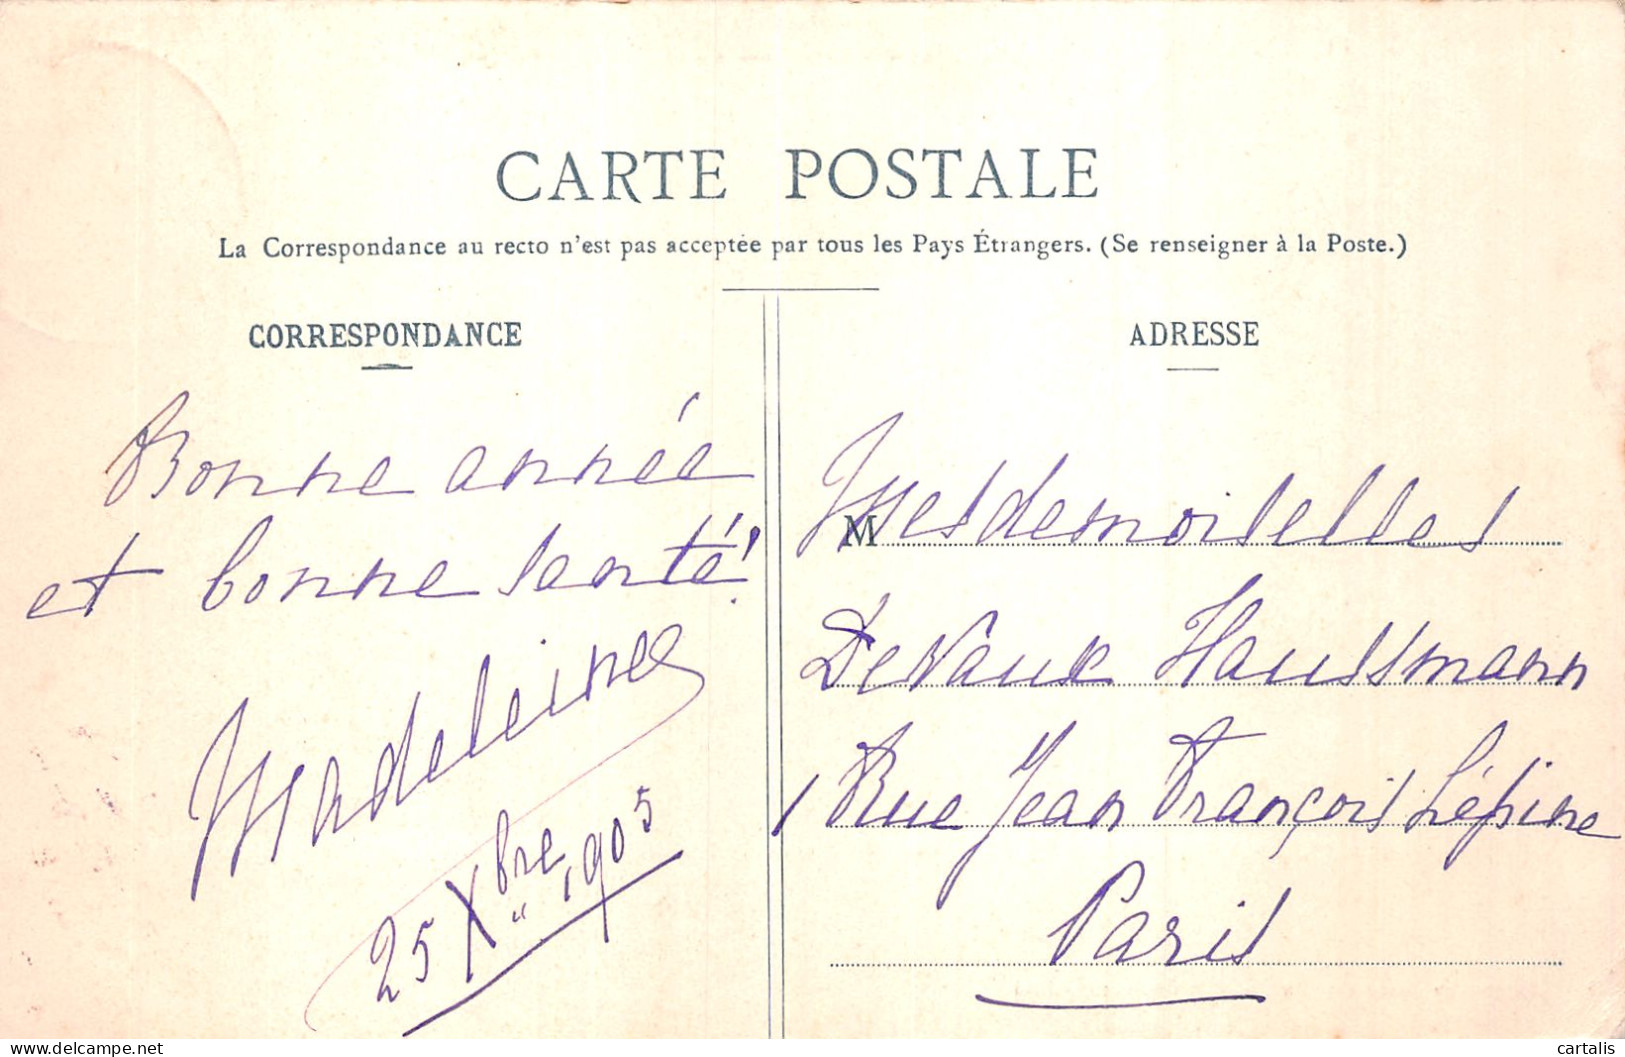 CARTE POSTALE
La Correspondance au recto n'est pas acceptée par tous les Pays Étrangers. (Se renseigner à la Poste.)
CORRESPONDANCE
Bonne année
et bonne santé!
Madeleine
25 Xbre 1905
ADRESSE
M Mesdemoiselles
DeVaux Haussmann
1 Rue Jean François Lépine
Paris
www.delcampe.net
cartalis